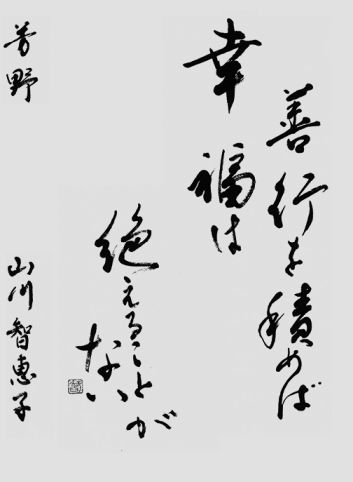 善行を積めば
幸福は
絶えることが
ない
芳野
山川智恵子